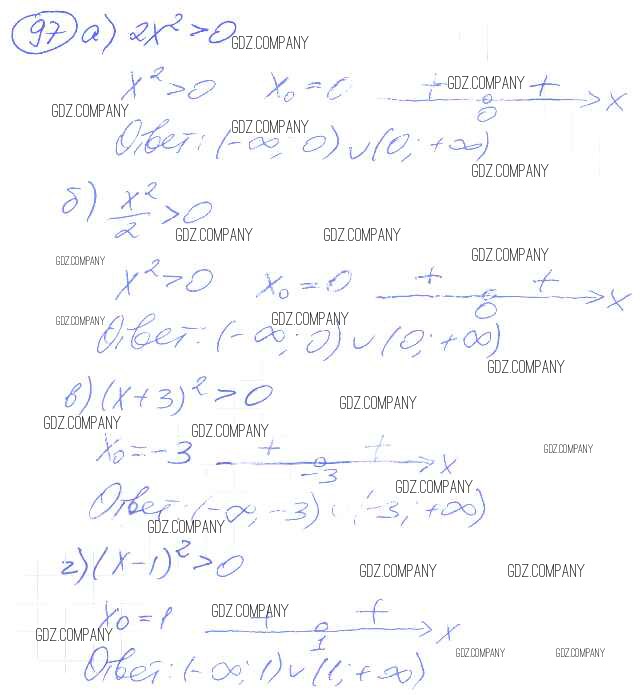 97 а) 2x² > 0 GDZ.COMPANY
x² > 0 x₀ = 0 + GDZ.COMPANY + 0 x
GDZ.COMPANY
Ответ: (-∞; 0) ∪ (0; +∞) GDZ.COMPANY
GDZ.COMPANY
б) x²/2 > 0
GDZ.COMPANY GDZ.COMPANY
GDZ.COMPANY GDZ.COMPANY
x² > 0 x₀ = 0 + + 0 x
GDZ.COMPANY GDZ.COMPANY
Ответ: (-∞; 0) ∪ (0; +∞)
GDZ.COMPANY
в) (x+3)² > 0 GDZ.COMPANY
GDZ.COMPANY GDZ.COMPANY
x₀ = -3 + + -3 x GDZ.COMPANY
GDZ.COMPANY
Ответ: (-∞; -3) ∪ (-3; +∞)
GDZ.COMPANY
г) (x-1)² > 0 GDZ.COMPANY GDZ.COMPANY
x₀ = 1 GDZ.COMPANY + + 1 x
GDZ.COMPANY
GDZ.COMPANY GDZ.COMPANY
Ответ: (-∞; 1) ∪ (1; +∞)